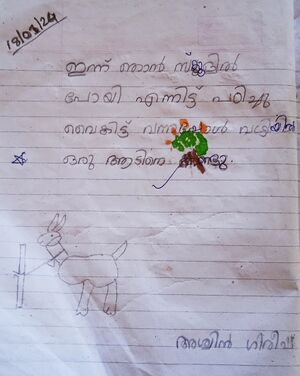 18/03/24
ഇന്ന് ഞാൻ സ്കൂളിൽ
പോയി എന്നിട്ട് പഠിച്ചു
വൈകിട്ട് വന്നപ്പോൾ
ഒരു ആടിനെ കണ്ടു.
അശ്വിൻ ഗിരീഷ്